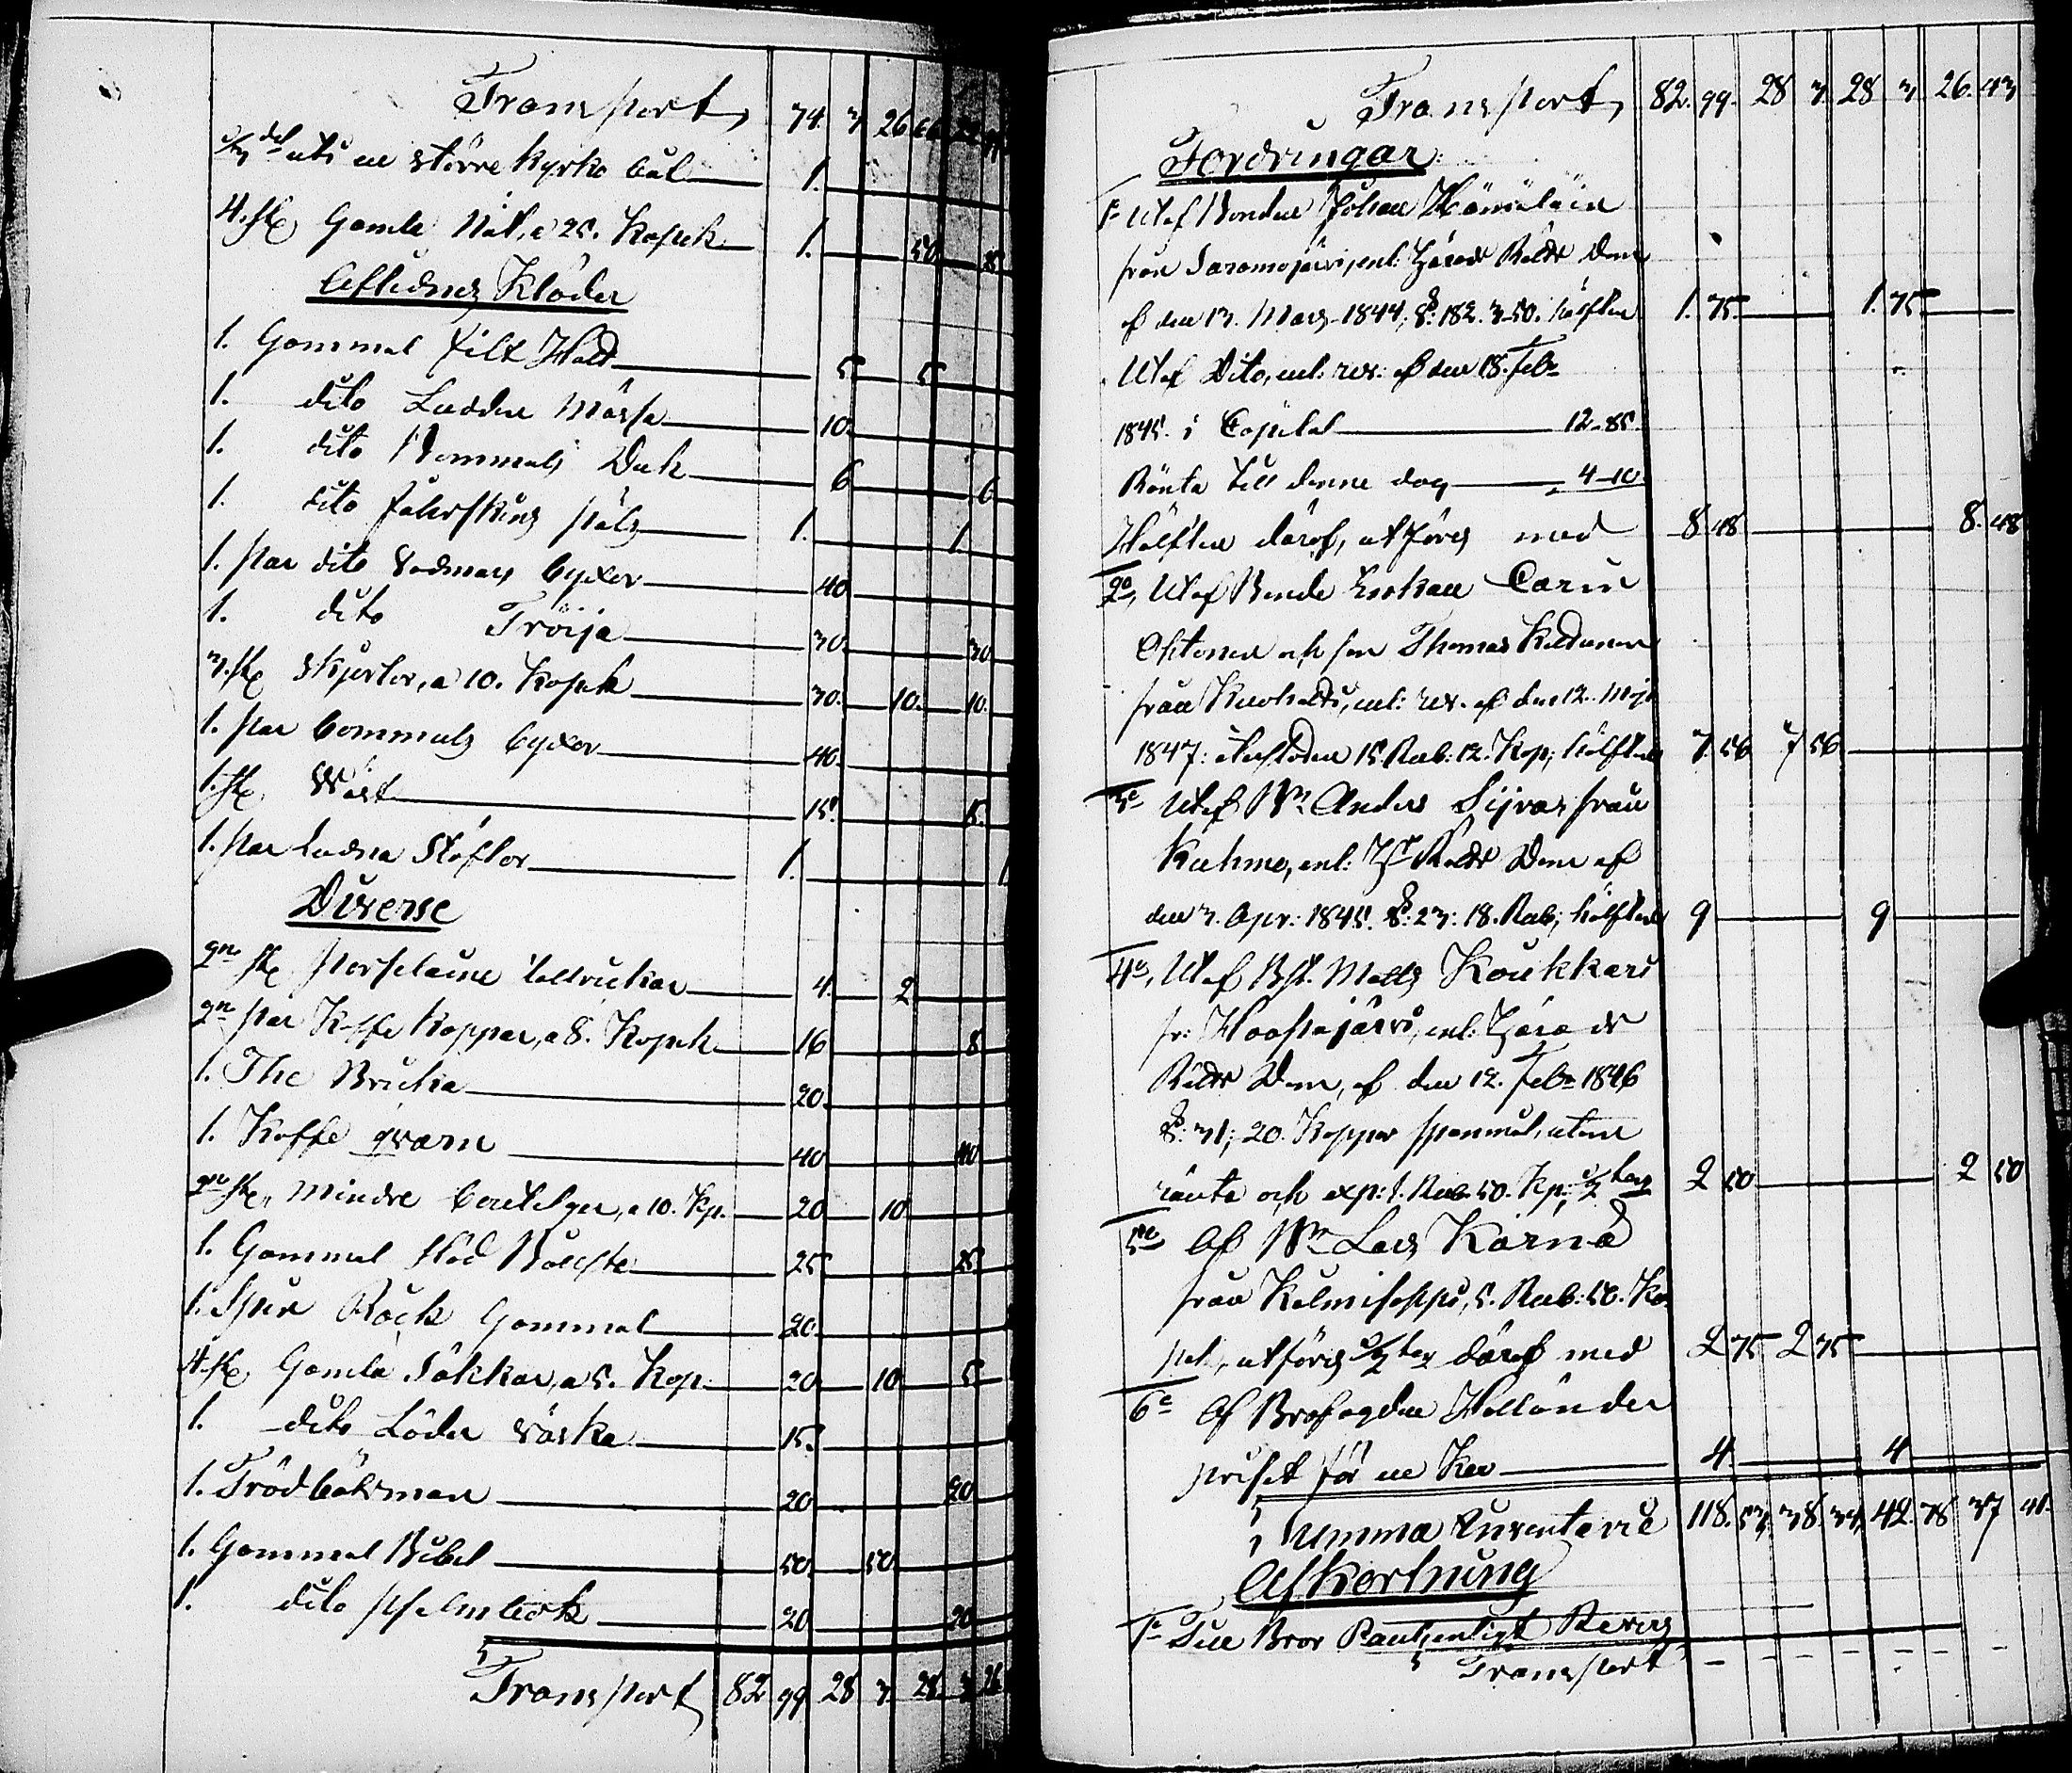 Transport 74. 3 26 66
1/3 del uti en större Kyrko båt 1.
4. st Gamla Nät, a 25. Kopek 1. 50
Aflidnes Kläder
1. Gammal filt Hatt 5 5
1. dito Ludden Mössa 10.
1. dito Bommuls Duk 6 6
1. dito fårskins päls 1. 1
1. par dito Vadmars byxor 40
1. dito Tröija 30. 30
3. st Skjortor, a 10. Kopek 30. 10. 10.
1. par bommuls byxor 40.
1. st Väst 15. 15.
1. par Ludna Stöflor 1.
Diverse
2ne st porselaine tallrickar 4. 2
2ne par Koffe Koppar, a 8. Kopek 16 8
1. The Bricka 20
1. Koffe qvarn 40 40
2ne st mindre boutelger, a 10. Kp. 20 10
1. Gammal 25 25
1. Spin Rock Gammal 20.
4. st Gamla Säkkar, a 5. Kop: 20 10 5
1. dito Läder väska 15.
1. 20 20
1. Gammal Bibel 50 50
1. dito psalmbok 20 20
Transport 82 99 28 3 28. 3 26
Transport 82. 99. 28 3. 28 3 26. 43
Fordringar:
1o Utaf Bonden Johan
från Saramojärvi, enl: Härads Rätts Dom
af den 13. Mars 1844, §: 182. 3-50. hälften 1. 75 1. 75
Utaf Dito, enl: rev: af den 18. Febr
1845. i Capital 12-85.
Ränta till denna dag 4-10
Hälften däraf, utföres med 8 48 8. 48
2o, Utaf Bonde Enkan Carin
och son Thomas
från enl: rev. af den 12. Maji
1847: 15. Rub: 12. Kop; hälften 7. 56 7 56
3o Utaf Bn Anders från
Kuhmo, enl: Hds Rätts Dom af
den 3. Apr: 1845. §: 23: 18. Rub; hälften 9 9
4o, Utaf Matts Koukkari
fr: enl: Härads
Rätts Dom, af den 12. Febr 1846
§: 31; 20. Kappar spanmål, utom
ränta och exp: 1. Rub. 50. Kp: 2 50 2 50
5o Af Bn Lars Kärnä
från 5. Rub: 50. Ko
pek, utföres däraf med 2 75 2 75
6o Af Brofogden Hollander
priset för en Ko 4. 4
Summa Inventarie 118. 53. 38. 34. 42. 78 37 41.
Afkortning
1o Till Bror enligt Revers
Transport